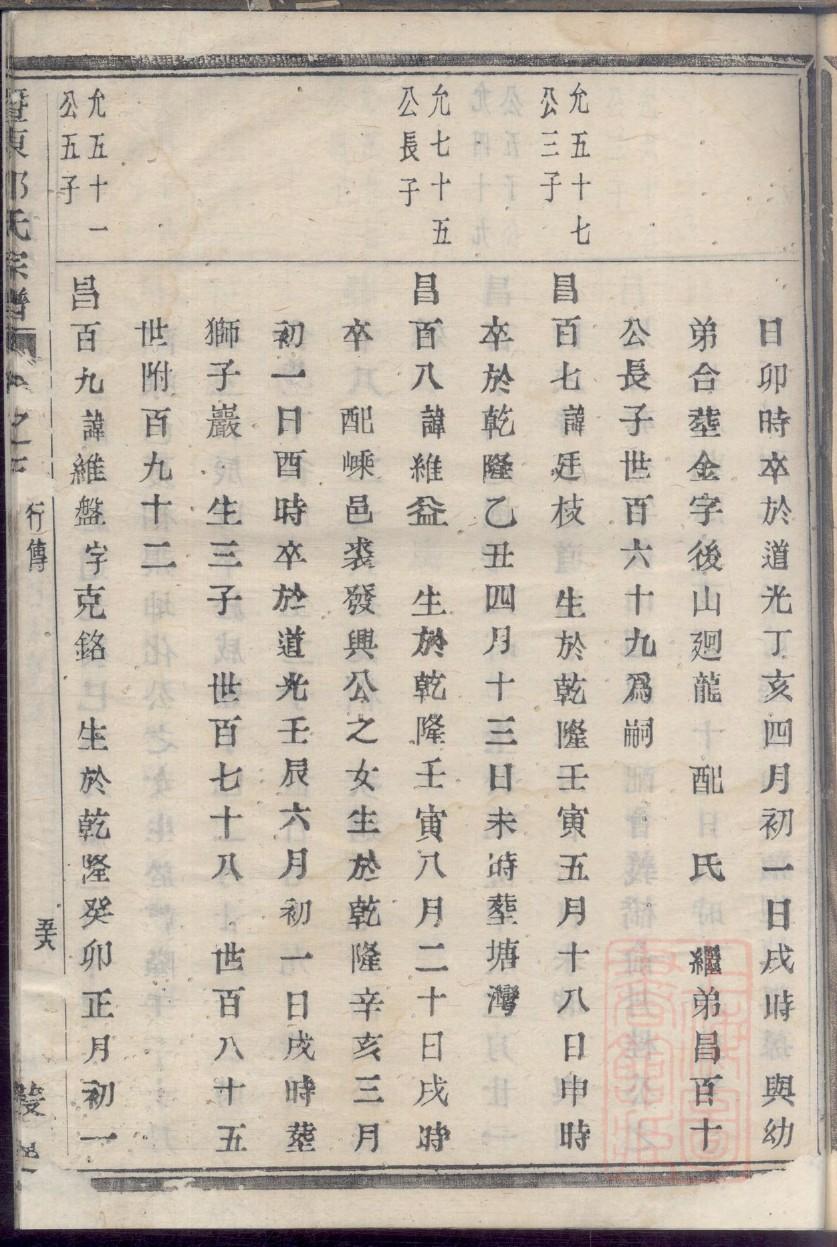 日卯時卒於道光丁亥四月初一日戌時 與幼
弟合塟金字後山廻龍 配 氏 繼弟昌百十
公長子世百六十九爲嗣
允五十七
公三子
昌百七諱廷枝 生於乾隆壬寅五月十八日申時
卒於乾隆乙丑四月十三日未時塟塘灣
允七十五
公長子
昌百八諱維益 生於乾隆壬寅八月二十日戌時
卒 配嵊邑裘發興公之女生於乾隆辛亥三月
初一日酉時卒於道光壬辰六月初一日戌時塟
獅子巖 生三子 世百七十八 世百八十五
世附百九十二
允五十一
公五子
昌百九諱維盤字克銘 生於乾隆癸卯正月初一
暨東 氏宗譜 卷之七 行傳 五六